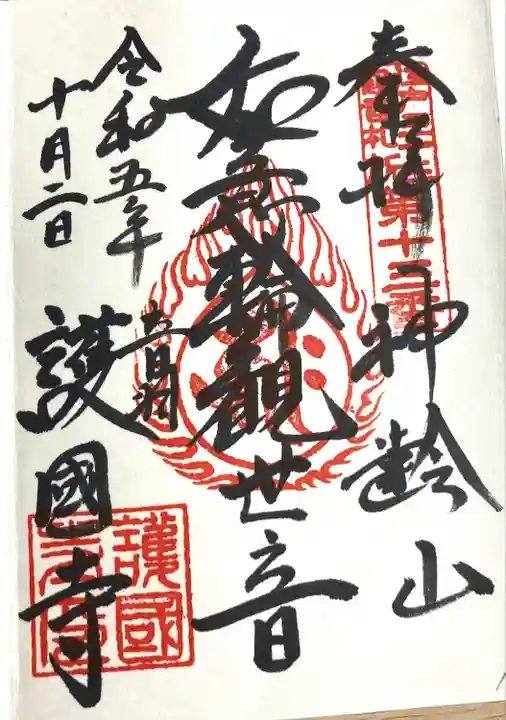 奉拝 神齢山
如意輪観世音
令和五年
十月二日
音羽
護國寺
第十三番
護國